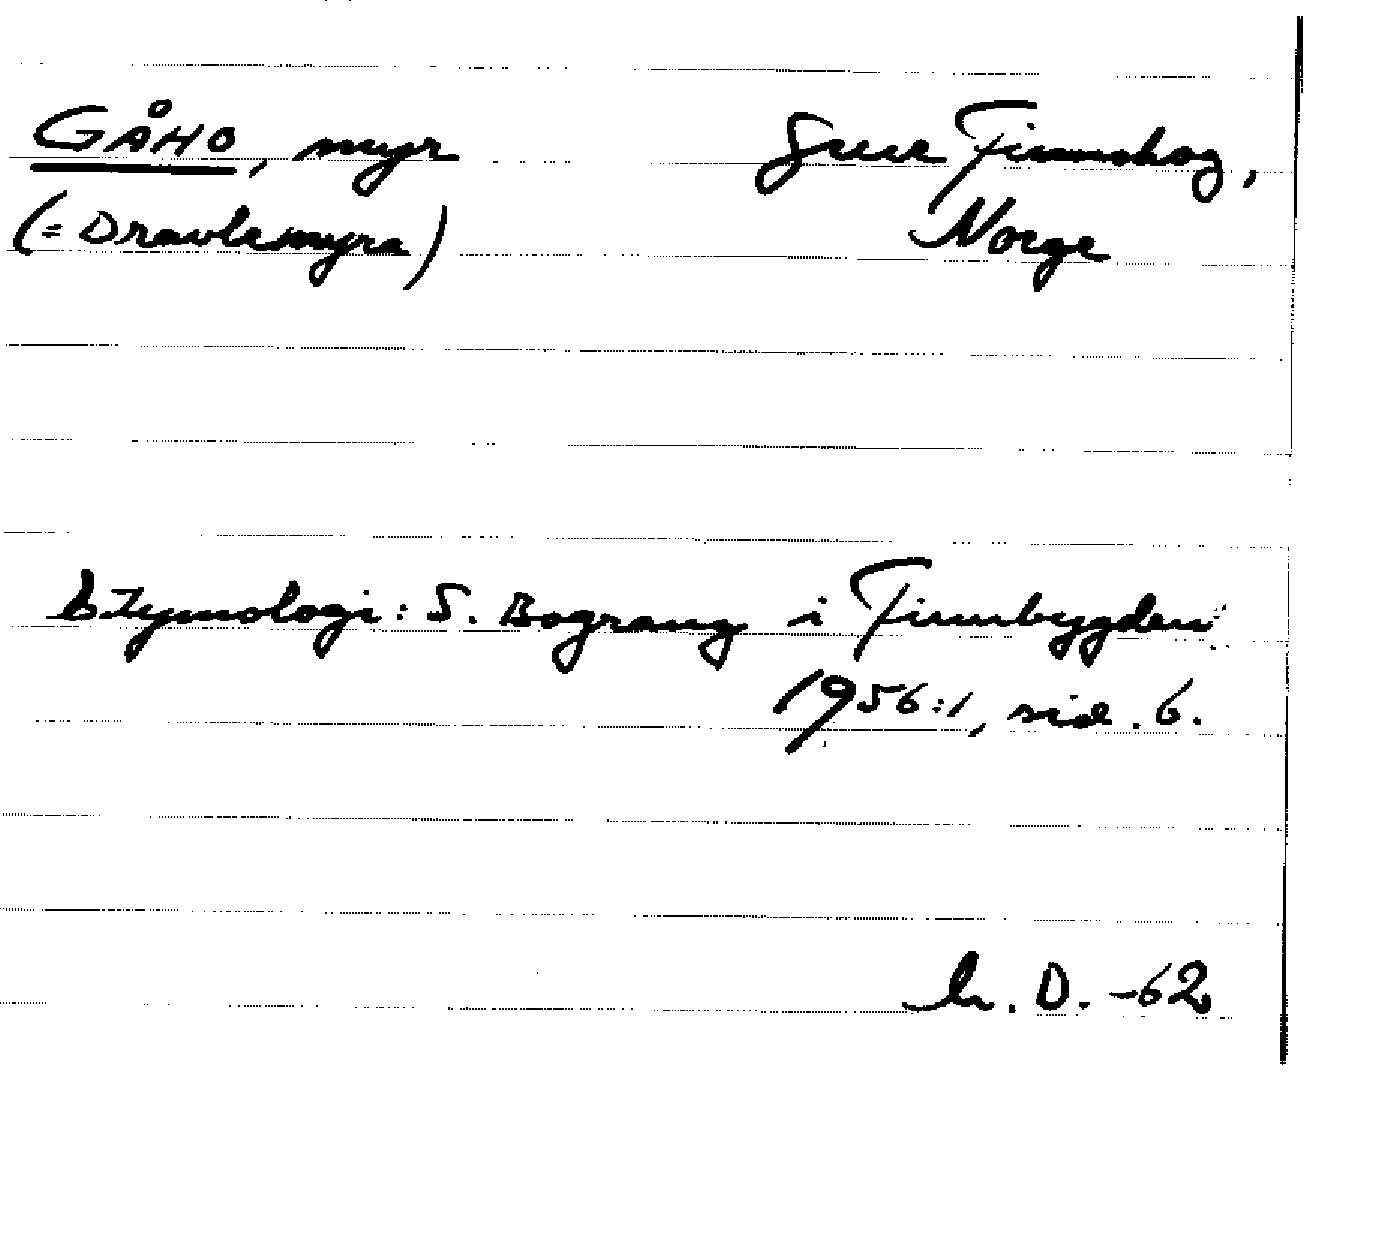 GÅHO, myr
Grue Finnskog,
(= Dravlemyra)
Norge
Etymologi: S. Bograng i Finnbygden
1956:1, sid. 6.
h. D. -62